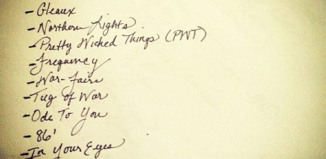 - Gleaux
- Northern Lights
- Pretty Wicked Things (PWT)
- Frequency
- War-Faire
- Tug of War
- Ode To You
- 86'
- In Your Eyes